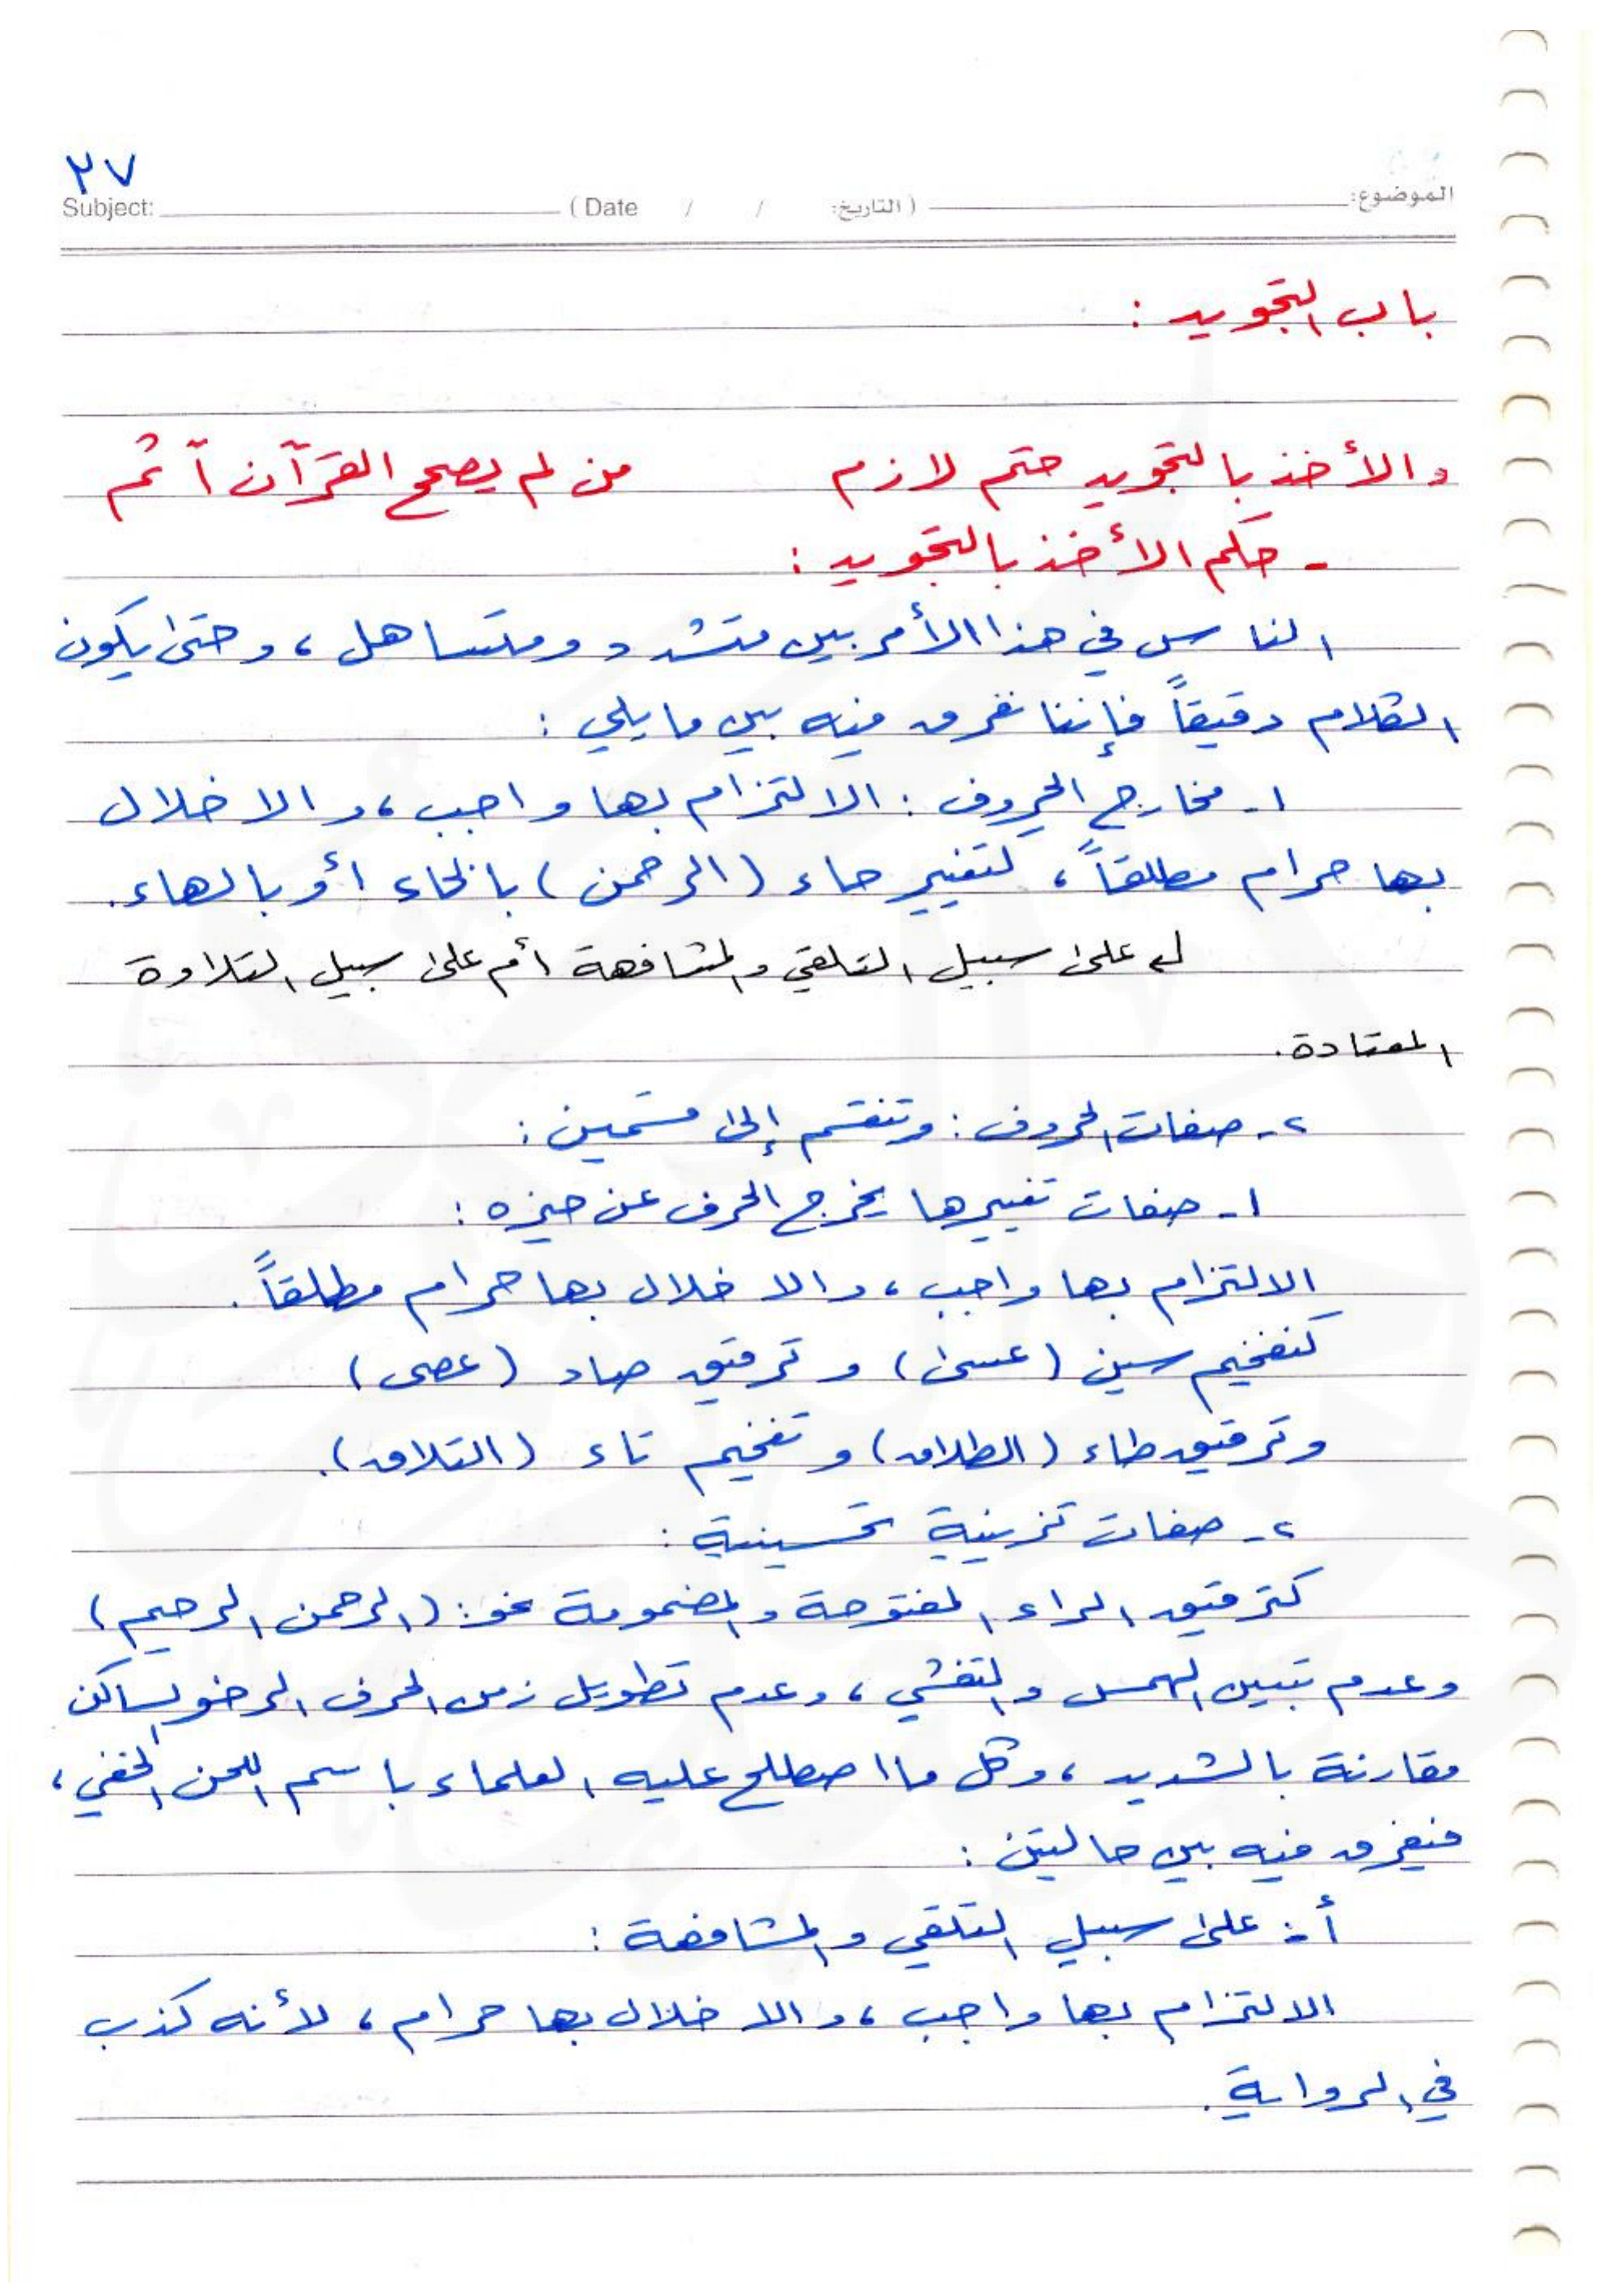 ٢٧
الموضوع: ( التاريخ: / / Date ) Subject:
باب التجويد :
والأخذ بالتجويد حتم لازم من لم يصحح القرآن آثم
- حكم الأخذ بالتجويد :
الناس في هذا الأمر بين متشدد ومتساهل ، وحتى يكون
الكلام دقيقاً فإننا نفرق فيه بين ما يلي :
١- مخارج الحروف : الالتزام بها واجب ، والاخلال
بها حرام مطلقاً ، كتغيير حاء ( الرحمن ) بالخاء أو بالهاء .
على سبيل التلقي والمشافهة أم على سبيل التلاوة
المعتادة .
٢- صفات الحروف : وتنقسم إلى قسمين :
١- صفات تغييرها يخرج الحرف عن حيزه :
الالتزام بها واجب ، والاخلال بها حرام مطلقاً .
كتفخيم سين ( عسى ) و ترقيق صاد ( عصى )
وترقيق طاء ( الطلاق ) و تفخيم تاء ( التلاق ) .
٢- صفات تزينية تحسينية :
كترقيق الراء المفتوحة والمضمومة نحو : ( الرحمن الرحيم )
وعدم تبيين الهمس والتفشي ، وعدم تطويل زمن الحرف الرخو الساكن
مقارنة بالشديد ، وكل ما اصطلح عليه العلماء باسم اللحن الخفي ،
فنفرق فيه بين حالتين :
أ- على سبيل التلقي والمشافهة :
الالتزام بها واجب ، والاخلال بها حرام ، لأنه كذب
في الرواية .